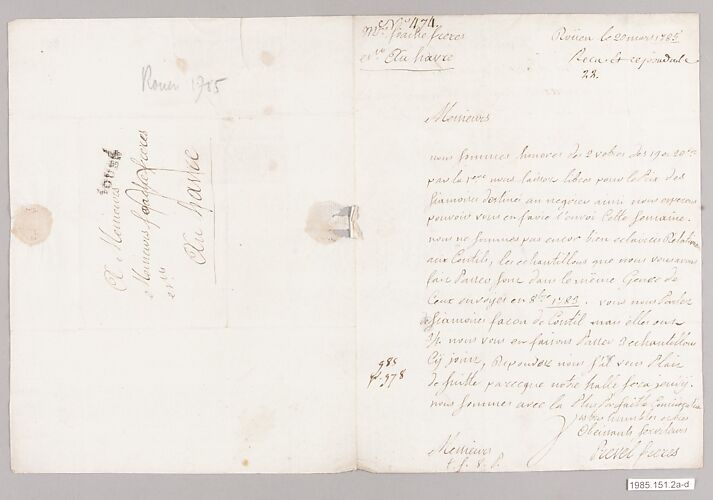 Rouen 1785
ROUEN
A Messieurs
Messieurs frères
Au havre
N° 474.
Mrs frères
Au havre
Roüen le 20 mars 1785
Recu et repondu le
22.
Messieurs
nous sommes honorés des 2 votres des 19 et 20
par la 1ere nous laisser libres pour le Prix des
Siamoises destinées au negoce ainsi nous esperons
pouvoir vous en faire l'envoi Cette Semaine.
nous ne sommes pas encor bien eclaircis Relativ.
aux Coutils, les echantillons que nous vous avons
fait Passer sont dans le même Genre de
Ceux envoyés en 8bre 1783. vous nous Parlez
de Siamoises façon de Coutil mais elles ont
nous vous en faisons Passer echantillons
Cy joint, Repondez nous s'il vous Plait
de suitte parceque notre halle sera
nous sommes avec la Plus Parfaite
vos tres humbles et tres
Obeissants serviteurs
Prevel freres
985
978
Messieurs
1985.151.2a-d